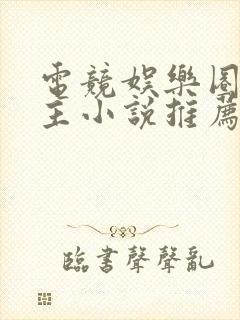 電競娛樂圈
主小說推薦
臨書聲聲亂